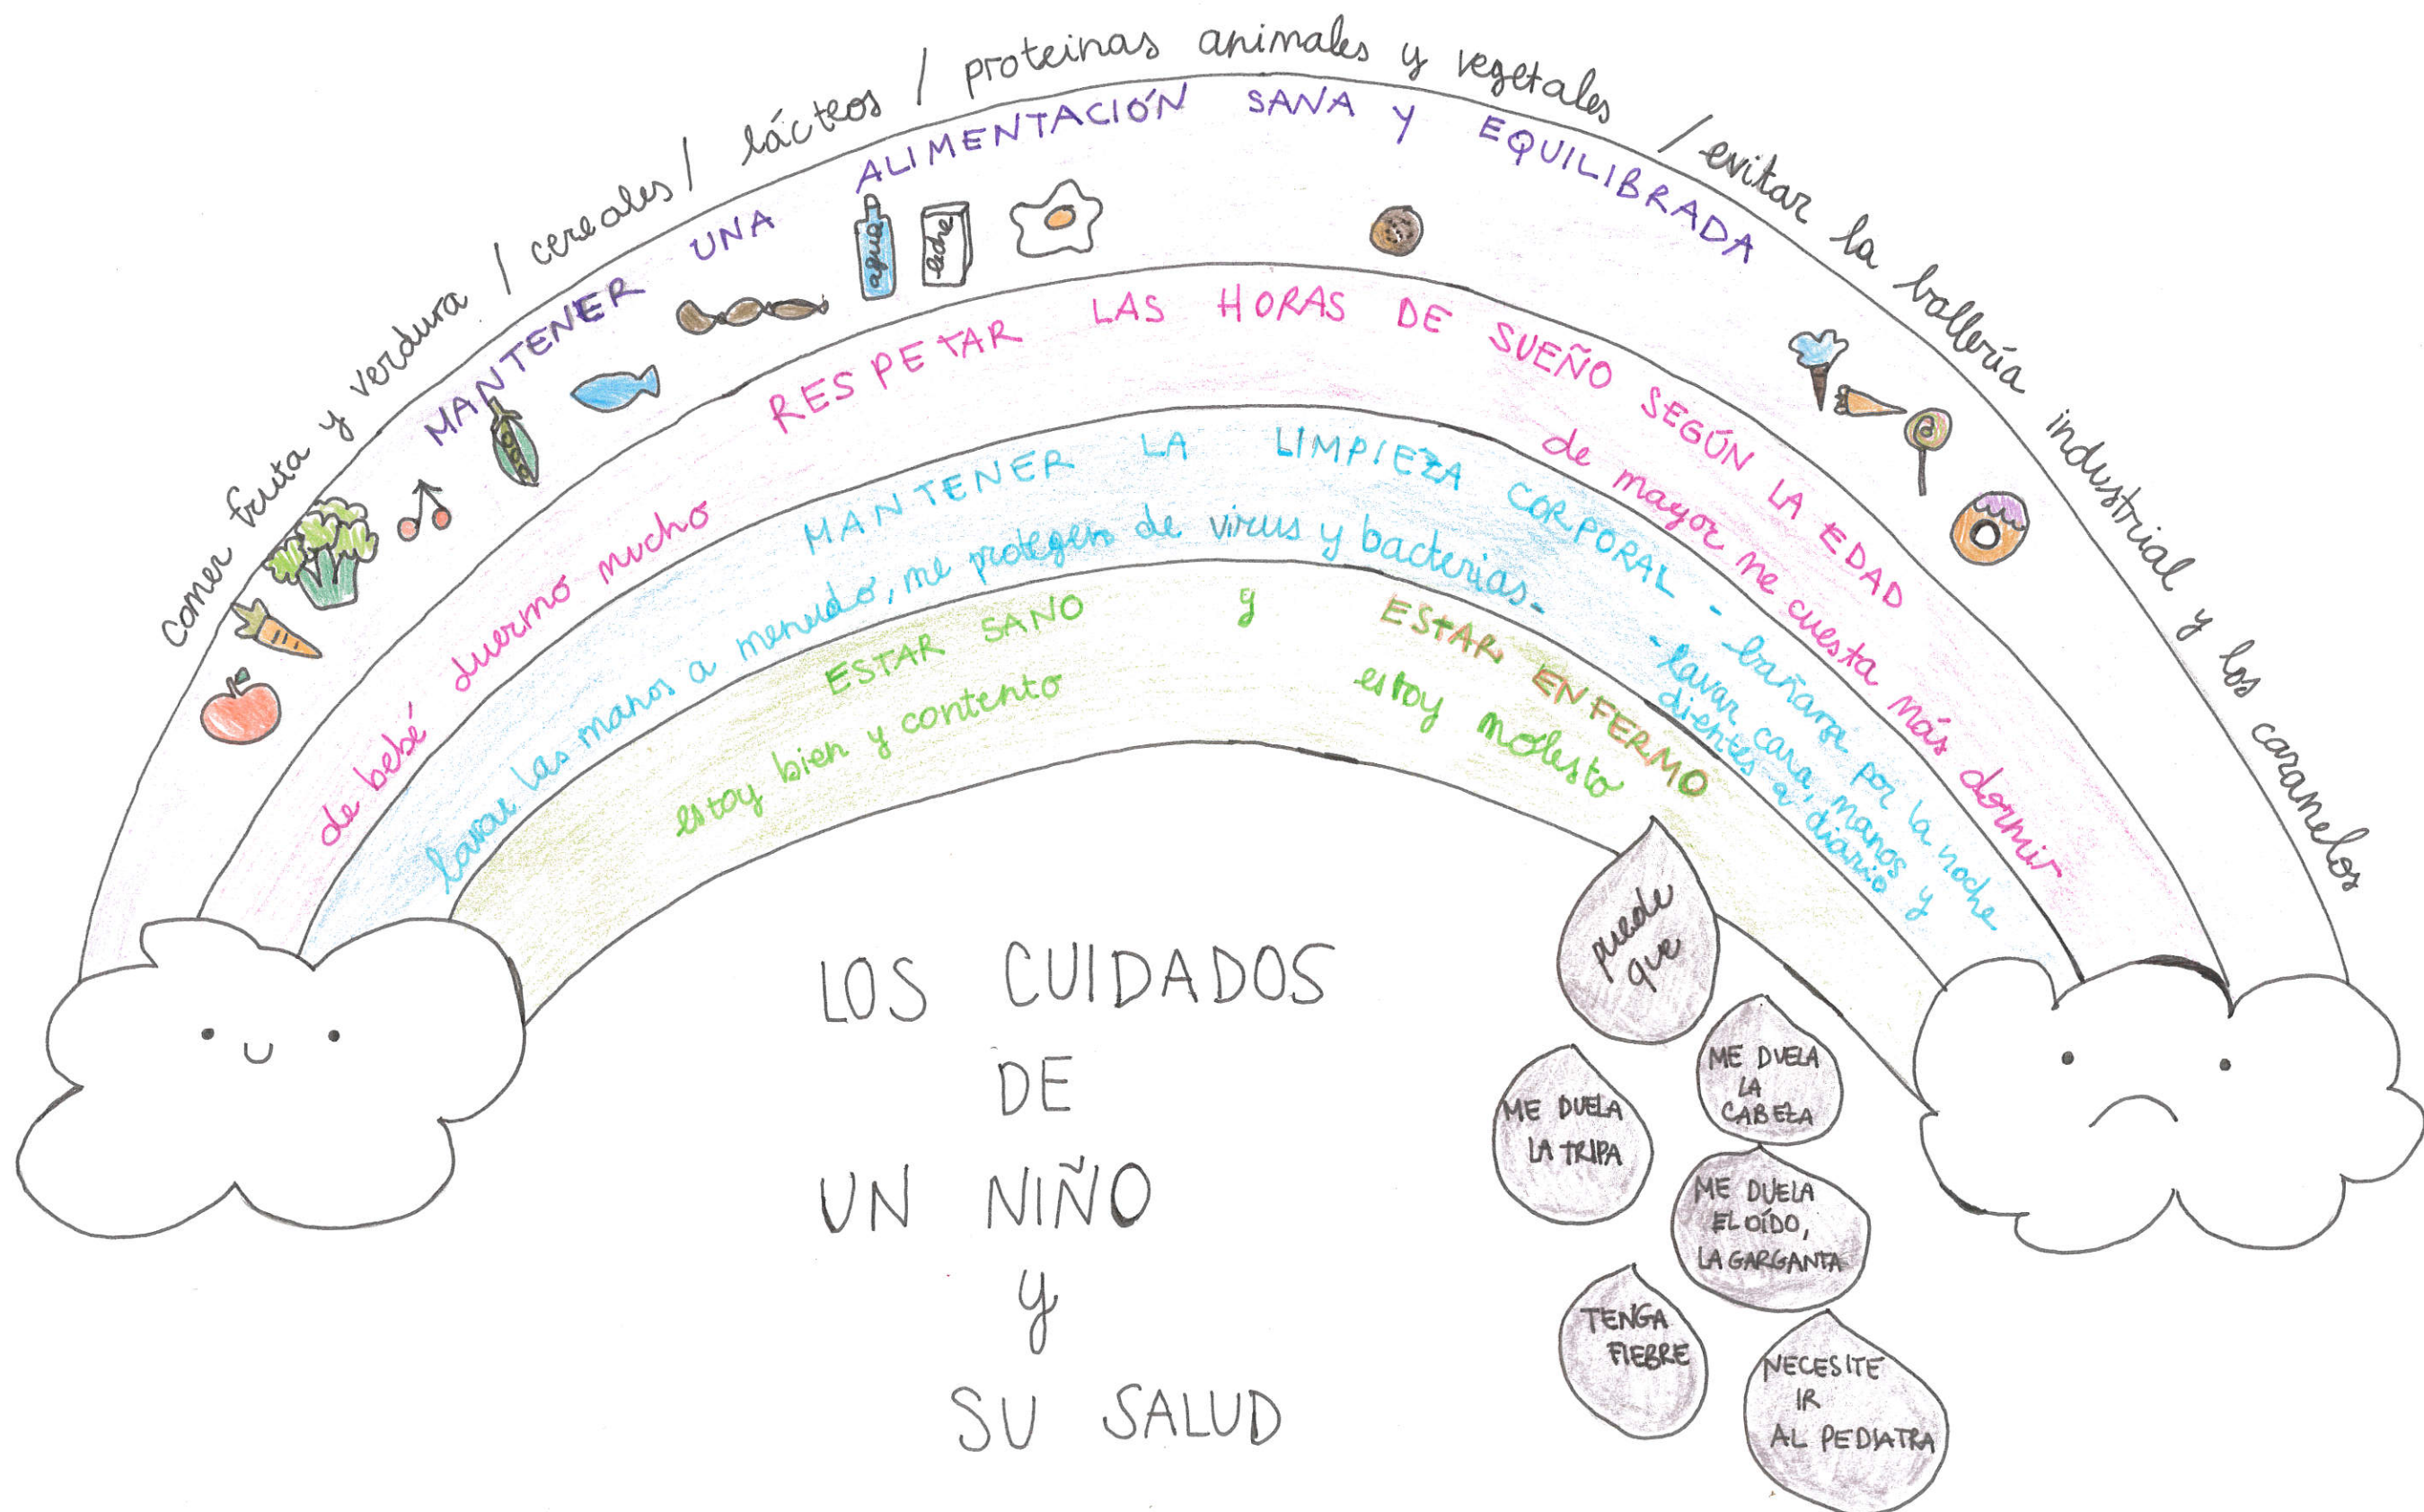 comer fruta y verdura / cereales / lácteos / proteinas animales y vegetales / evitar la bollería industrial y los caramelos
MANTENER UNA ALIMENTACIÓN SANA Y EQUILIBRADA
agua
leche
RESPETAR LAS HORAS DE SUEÑO SEGÚN LA EDAD
de bebé duermo mucho
de mayor me cuesta más dormir
MANTENER LA LIMPIEZA CORPORAL - bañarse por la noche
lavar las manos a menudo, me protegen de virus y bacterias.
- lavar cara, manos y
dientes a diario
ESTAR SANO y ESTAR ENFERMO
estoy bien y contento
estoy molesto
LOS CUIDADOS
DE
UN NIÑO
y
SU SALUD
puede
que
ME DUELA
LA
CABEZA
ME DUELA
LA TRIPA
ME DUELA
EL OÍDO,
LA GARGANTA
TENGA
FIEBRE
NECESITE
IR
AL PEDIATRA